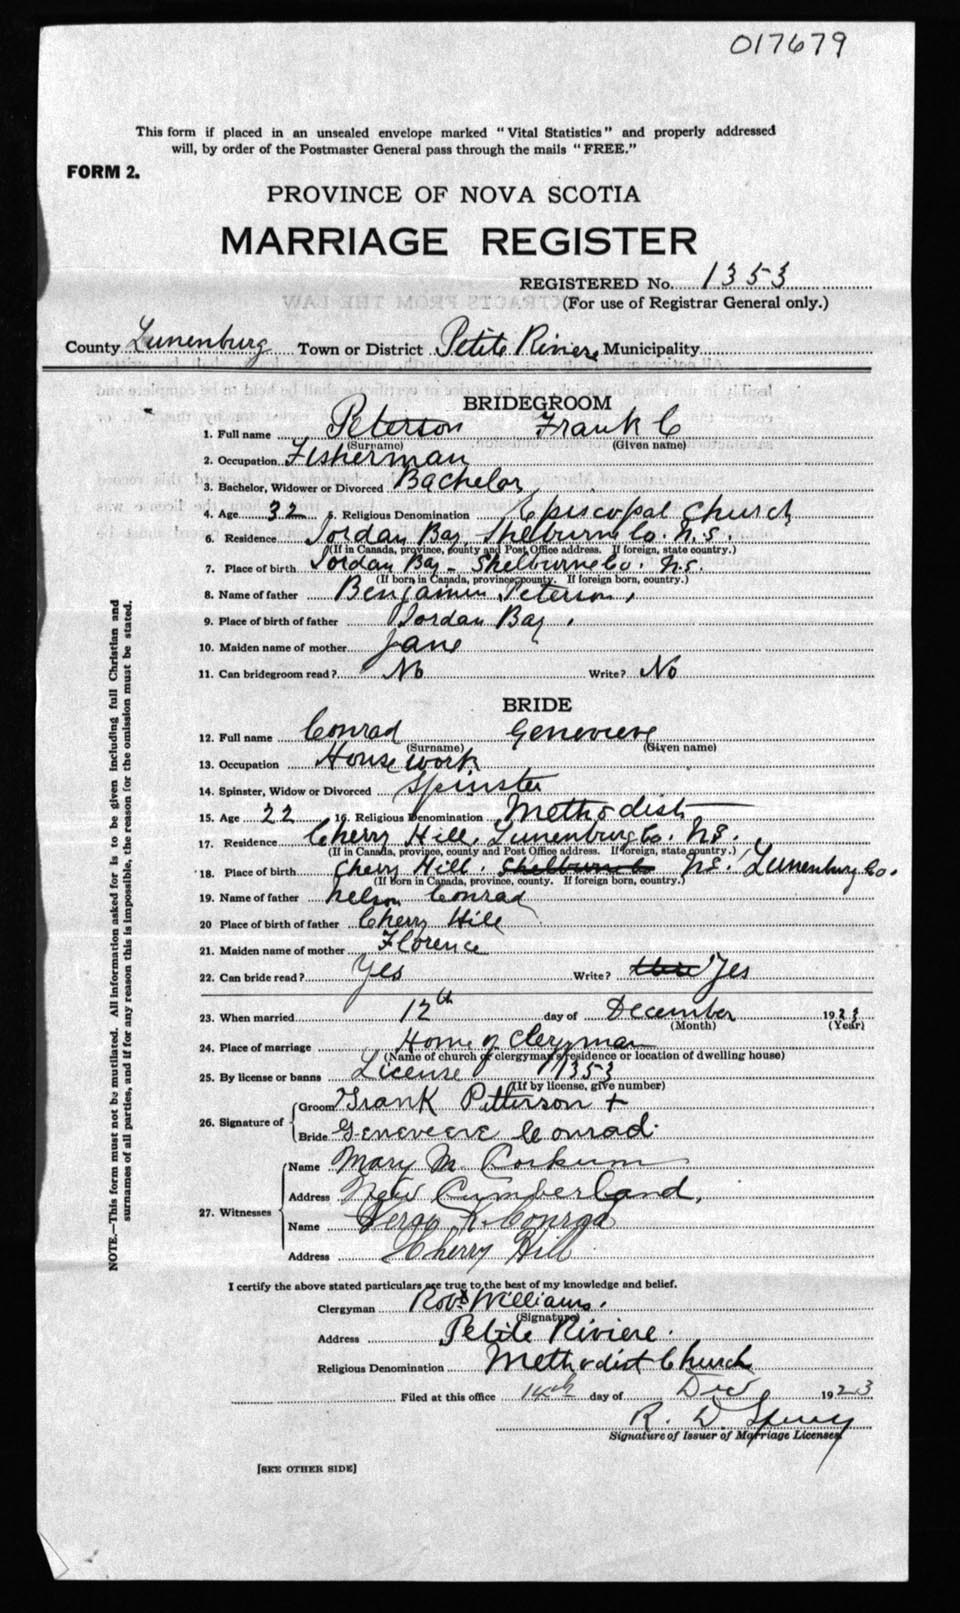 017679
This form if placed in an unsealed envelope marked "Vital Statistics" and properly addressed
will, by order of the Postmaster General pass through the mails "FREE."
FORM 2.
PROVINCE OF NOVA SCOTIA
MARRIAGE REGISTER
REGISTERED No. 1353
(For use of Registrar General only.)
County Lunenburg Town or District Petite Riviere Municipality
BRIDEGROOM
1. Full name Peterson Frank C
(Surname) (Given name)
2. Occupation Fisherman
3. Bachelor, Widower or Divorced Bachelor
4. Age 32 5. Religious Denomination Episcopal Church
6. Residence Jordan Bay, Shelburne Co. N.S.
(If in Canada, province, county and Post Office address. If foreign, state country.)
7. Place of birth Jordan Bay - Shelburne Co. N.S.
(If born in Canada, province, county. If foreign born, country.)
8. Name of father Benjamin Peterson,
9. Place of birth of father Jordan Bay.
10. Maiden name of mother Jane
11. Can bridegroom read? No Write? No
BRIDE
12. Full name Conrad Genevieve
(Surname) (Given name)
13. Occupation House work
14. Spinster, Widow or Divorced Spinster
15. Age 22 16. Religious Denomination Methodist
17. Residence Cherry Hill, Lunenburg Co. N.S.
(If in Canada, province, county and Post Office address. If foreign, state country.)
18. Place of birth Cherry Hill. Shelburne Co N.S. Lunenburg Co.
(If born in Canada, province, county. If foreign born, country.)
19. Name of father Nelson Conrad
20 Place of birth of father Cherry Hill
21. Maiden name of mother Florence
22. Can bride read? Yes Write? Yes
23. When married 12th day of December 1923
(Month) (Year)
24. Place of marriage Home of Clergyman
(Name of church or clergyman's residence or location of dwelling house)
25. By license or banns License 1353
(If by license, give number)
26. Signature of Groom Frank Petterson +
Bride Genevieere Conrad.
27. Witnesses Name Mary M. Corkum
Address New Cumberland,
Name Conrad
Address Cherry Hill
I certify the above stated particulars are true to the best of my knowledge and belief.
Clergyman Robt Williams.
(Signature)
Address Petite Riviere.
Religious Denomination Methodist Church
Filed at this office 14th day of Dec 1923
R. D.
Signature of Issuer of Marriage Licenses
[SEE OTHER SIDE]
NOTE.—This form must not be mutilated. All information asked for is to be given including full Christian and
surnames of all parties, and if for any reason this is impossible, the reason for the omission must be stated.